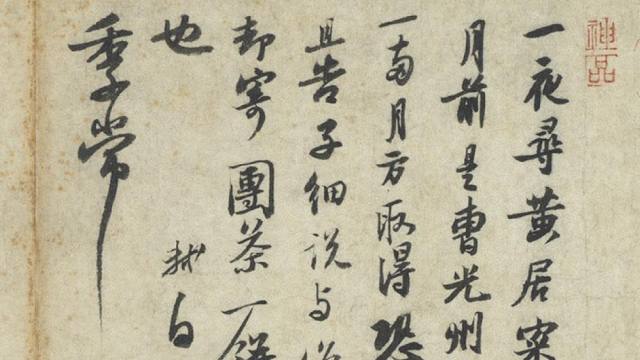 神品
一夜尋黃居寀
月前是曹光州
一兩月方取得恐
且告子細說与
却寄團茶一餅
也 軾白
季常